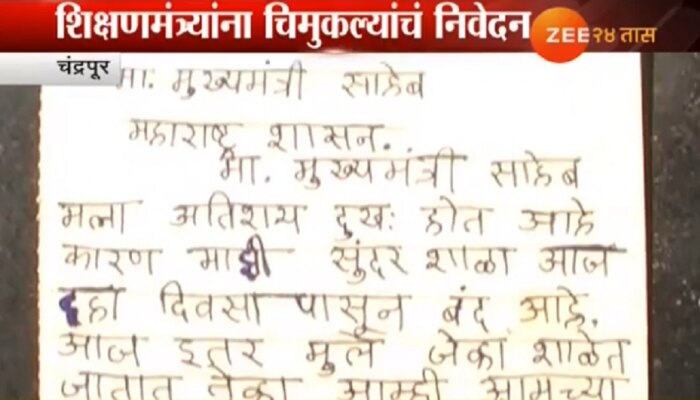 शिक्षणमंत्र्यांना चिमुकल्यांचं निवेदन
ZEE २४ तास
चंद्रपूर
मा. मुख्यमंत्री साहेब
महाराष्ट्र शासन.
मा. मुख्यमंत्री साहेब
मला अतिशय दुखः होत आहे
कारण माझी सुंदर शाळा आज
दहा दिवसा पासून बंद आहे.
आज इतर मुले जेव्हा शाळेत
जातात तेव्हा आम्ही आमच्या